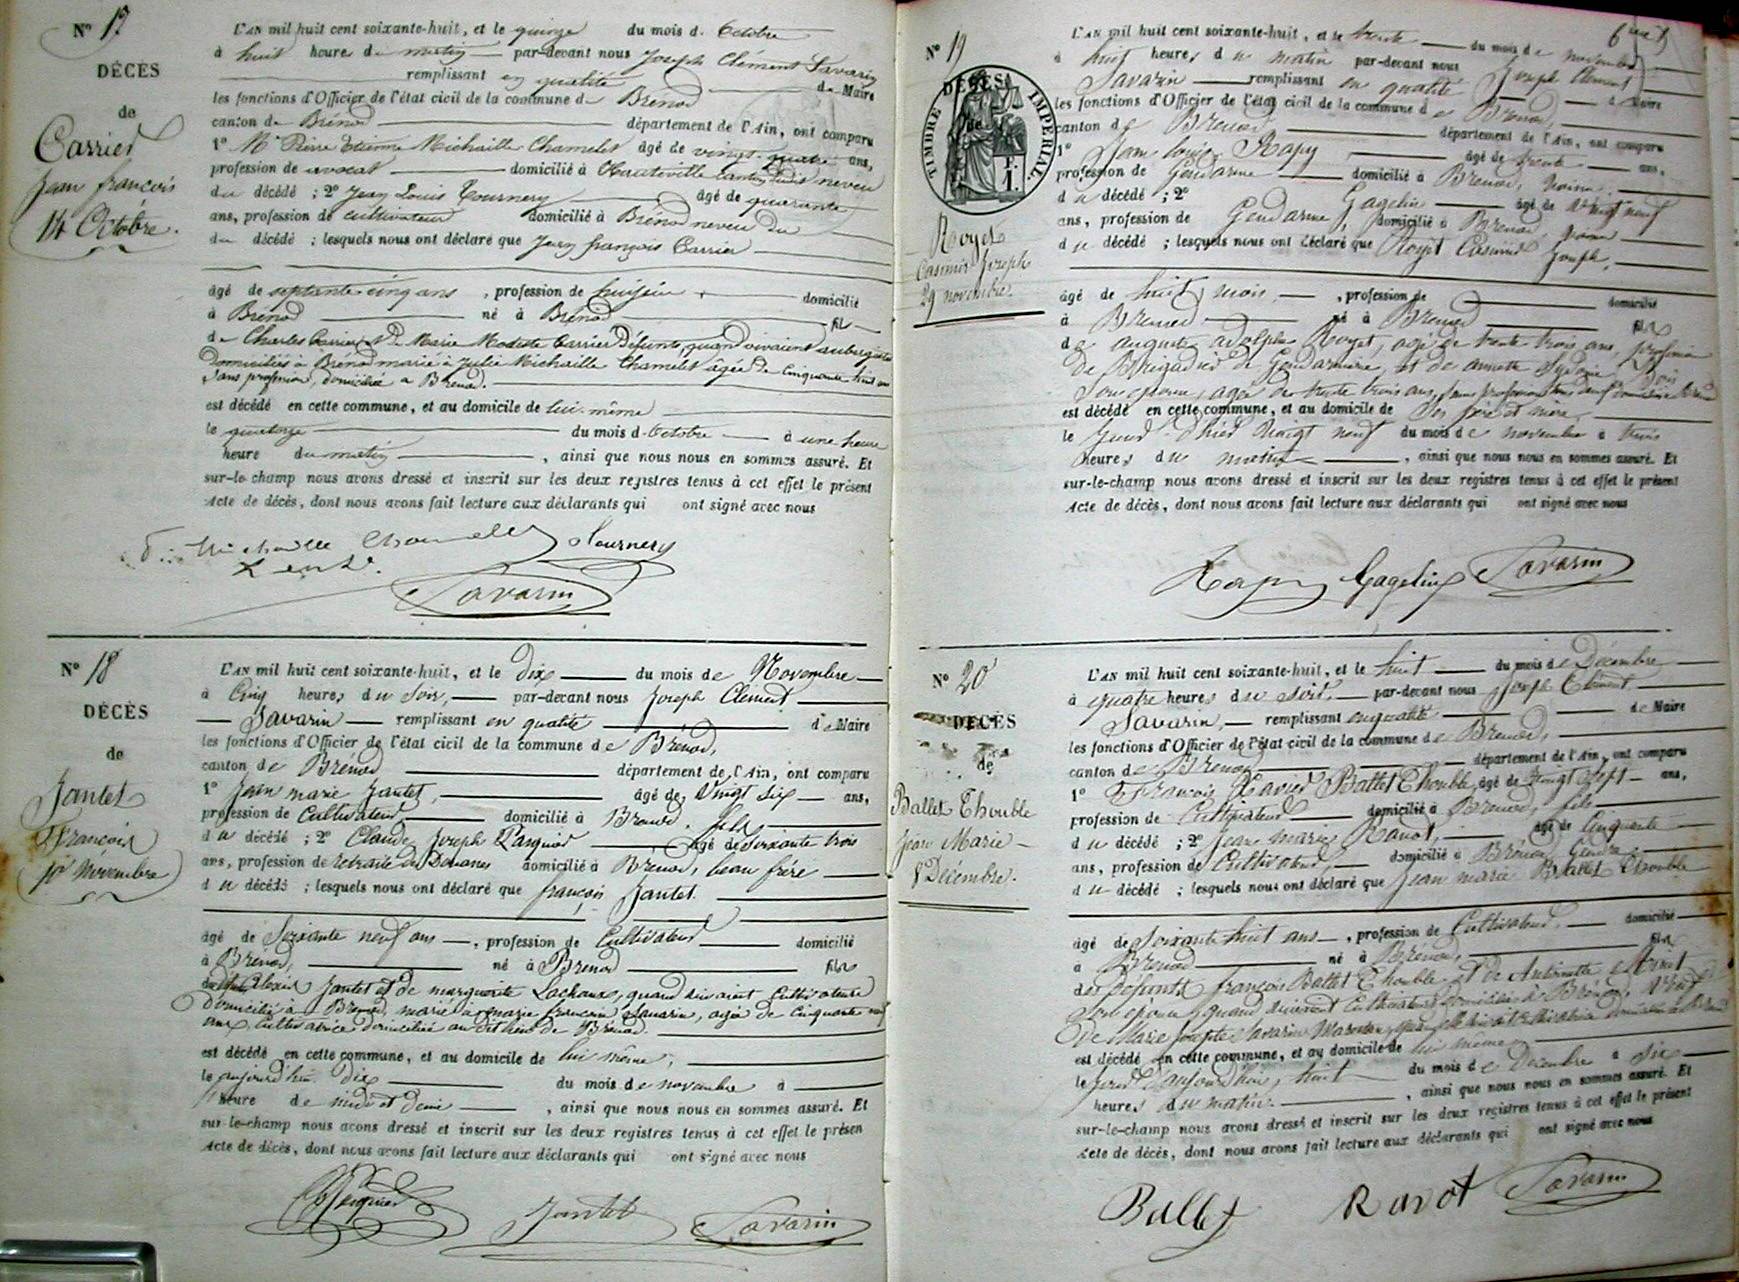 N° 17
DÉCÈS
de
Carrier
Jean françois
14 Octobre.
L'AN mil huit cent soixante-huit, et le quinze du mois d. Octobre
à huit heures du matin par-devant nous Joseph Clément Savarin
remplissant en qualité de Maire
les fonctions d'Officier de l'état civil de la commune de Brénod
canton de Brénod département de l'Ain, ont comparu
1° Mr Pierre Etienne Michaille Chamelet âgé de vingt-quatre ans,
profession de avocat domicilié à Hauteville neveu
du décédé ; 2° Jean Louis Tournery âgé de quarante
ans, profession de cultivateur domicilié à Brénod neveu du
du décédé ; lesquels nous ont déclaré que Jean françois Carrier
âgé de septante cinq ans , profession de huissier domicilié
à Brénod né à Brénod fils
de Charles Carrier et de Marie Modeste Carrier Défunts, quand vivaient aubergistes
domiciliés à Brénod marié à Julie Michaille Chamelet âgée de cinquante huit ans
sans profession, domiciliée a Brénod.
est décédé en cette commune, et au domicile de lui-même
le quatorze du mois d'Octobre à une heure
heure du matin , ainsi que nous nous en sommes assuré. Et
sur-le-champ nous avons dressé et inscrit sur les deux registres tenus à cet effet le présent
Acte de décès, dont nous avons fait lecture aux déclarants qui ont signé avec nous
Michaille Chamelet Tournery
Savarin
N° 18
DÉCÈS
de
Jantet
François
10 Novembre
L'AN mil huit cent soixante-huit, et le Dix du mois de Novembre
à Cinq heures du Soir, par-devant nous Joseph Clément
Savarin remplissant en qualité de Maire
les fonctions d'Officier de l'état civil de la commune de Brenod,
canton de Brenod département de l'Ain, ont comparu
1° Jean marie Jantet, âgé de Vingt six ans,
profession de Cultivateur, domicilié à Brenod. fils
du décédé ; 2° Claude Joseph Pasquier âgé de soixante trois
ans, profession de retraité des Douanes domicilié à Brenod, beau frère
du décédé ; lesquels nous ont déclaré que françois Jantet.
âgé de Soixante neuf ans , profession de Cultivateur domicilié
à Brenod, né à Brenod fils
Jantet et de marguerite Lachaux, quand vivaient Cultivateurs
domicilié à Brenod, marié à marie françoise Savarin, agée de Cinquante neuf
ans, Cultivatrice domiciliée au dit lieu de Brénod.
est décédé en cette commune, et au domicile de lui même,
le aujourd'hui dix du mois de novembre à
heure de midi et demi , ainsi que nous nous en sommes assuré. Et
sur-le-champ nous avons dressé et inscrit sur les deux registres tenus à cet effet le présen
Acte de décès, dont nous avons fait lecture aux déclarants qui ont signé avec nous
Jantet Savarin
N° 19
DÉCÈS
de
TIMBRE IMPÉRIAL
Royet
Casimir Joseph
29 novembre.
L'AN mil huit cent soixante-huit, et le trente du mois de novembre
à huit heures du matin par-devant nous Joseph Clément
Savarin remplissant en qualité de Maire
les fonctions d'Officier de l'état civil de la commune de Brenod,
canton de Brenod, département de l'Ain, ont comparu
1° Jean louis Rapy âgé de trente ans,
profession de Gendarme domicilié à Brenod, voisin
du décédé ; 2° Gagelin âgé de vingt neuf
ans, profession de Gendarme, domicilié à Brenod, voisin
du décédé ; lesquels nous ont déclaré que Royet Casimir Joseph,
âgé de huit mois , profession de domicilié
à Brenod né à Brenod fils
de auguste adolphe Royet, agé de trente trois ans, profession
de Brigadier de Gendarmerie, et de annette Sydonie
son épouse, agée de trente trois ans, sans profession
est décédé en cette commune, et au domicile de Ses père et mère,
le Jour d'hier vingt neuf du mois de novembre à trois
heures du matin , ainsi que nous nous en sommes assuré. Et
sur-le-champ nous avons dressé et inscrit sur les deux registres tenus à cet effet le présent
Acte de décès, dont nous avons fait lecture aux déclarants qui ont signé avec nous
Rapy Gagelin Savarin
N° 20
DÉCÈS
de
Ballet Thouble
Jean Marie
8 Décembre.
L'AN mil huit cent soixante-huit, et le huit du mois de Décembre
à quatre heures du soir. par-devant nous Joseph Clément
Savarin, remplissant en qualité de Maire
les fonctions d'Officier de l'état civil de la commune de Brenod,
canton de Brenod département de l'Ain, ont comparu
1° François Xavier Ballet Thouble, âgé de vingt sept ans,
profession de Cultivateur domicilié à Brenod, fils
du décédé ; 2° Jean marie Ravot, âgé de Cinquante
ans, profession de Cultivateur domicilié à Brénod, Gendre
du décédé ; lesquels nous ont déclaré que Jean marie Ballet Thouble
âgé de Soixante huit ans , profession de Cultivateur. domicilié
à Brenod né à Brénod, fils
des défunts françois Ballet Thouble et de Antoinette
son épouse, quand vivaient Cultivateurs domiciliés à Brénod, veuf
de Marie Josephte Savarin
est décédé en cette commune, et au domicile de lui même
le Jour d'aujourd'hui, huit du mois de Décembre à Six
heures du matin. , ainsi que nous nous en sommes assuré. Et
sur-le-champ nous avons dressé et inscrit sur les deux registres tenus à cet effet le présent
Acte de décès, dont nous avons fait lecture aux déclarants qui ont signé avec nous
Ballet Ravot Savarin